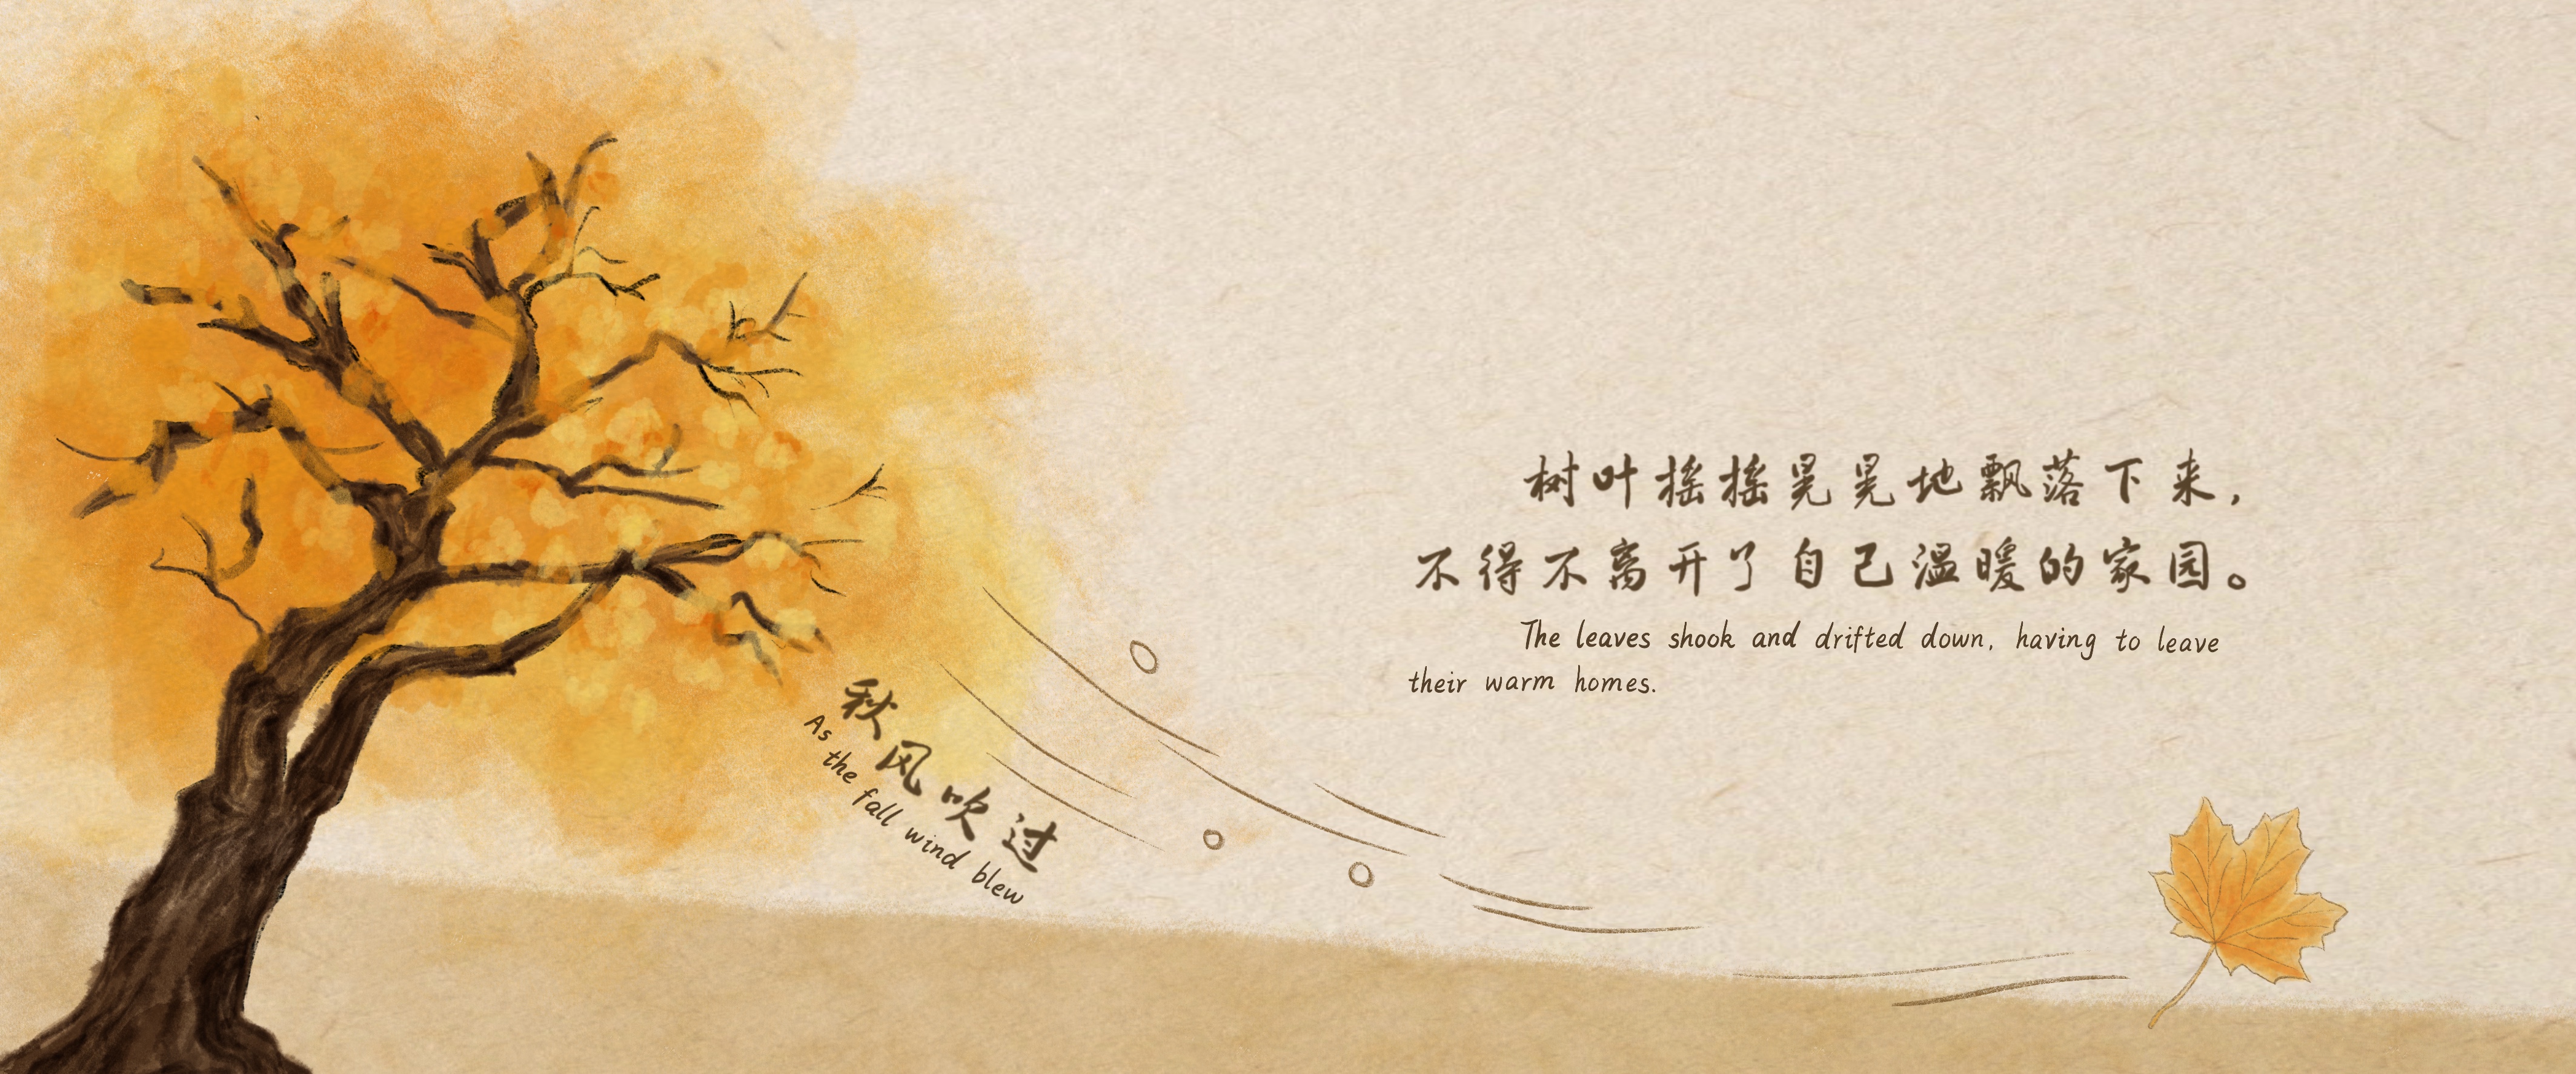 秋风吹过
As the fall wind blew
树叶摇摇晃晃地飘落下来,
不得不离开了自己温暖的家园。
The leaves shook and drifted down, having to leave
their warm homes.